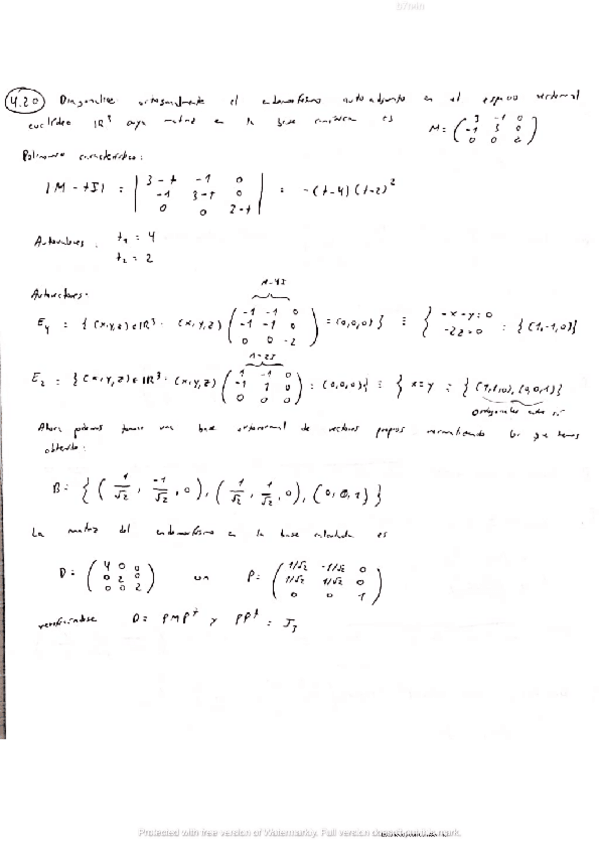 4.20 Diagonalice ortogonalmente el endomorfismo autoadjunto en el espacio vectorial
euclídeo IR³ cuya matriz en la base canónica es M = ( 3 -1 0 / -1 3 0 / 0 0 2 )
Polinomio característico:
|M - tI| = | 3-t -1 0 / -1 3-t 0 / 0 0 2-t | = -(t-4)(t-2)²
Autovalores: t₁ = 4
t₂ = 2
Autovectores:
A-4I
E₄ = { (x,y,z) ∈ IR³ · (x,y,z) ( -1 -1 0 / -1 -1 0 / 0 0 -2 ) = (0,0,0) } ≡ { -x-y=0 / -2z=0 = { (1,-1,0) }
A-2I
E₂ = { (x,y,z) ∈ IR³ · (x,y,z) ( 1 -1 0 / -1 1 0 / 0 0 0 ) = (0,0,0) } ≡ { x=y = { (1,1,0), (0,0,1) }
ortogonales entre sí
Ahora podemos tomar una base ortonormal de vectores propios normalizando los que hemos
obtenido:
B = { ( 1/√2 , -1/√2 , 0 ), ( 1/√2 , 1/√2 , 0 ), ( 0, 0, 1 ) }
La matriz del endomorfismo en la base calculada es
D = ( 4 0 0 / 0 2 0 / 0 0 2 ) con P = ( 1/√2 -1/√2 0 / 1/√2 1/√2 0 / 0 0 1 )
verificándose D = PMPᵗ y PPᵗ = I₃
Protected with free version of Watermarkly. Full version doesn't put this mark.